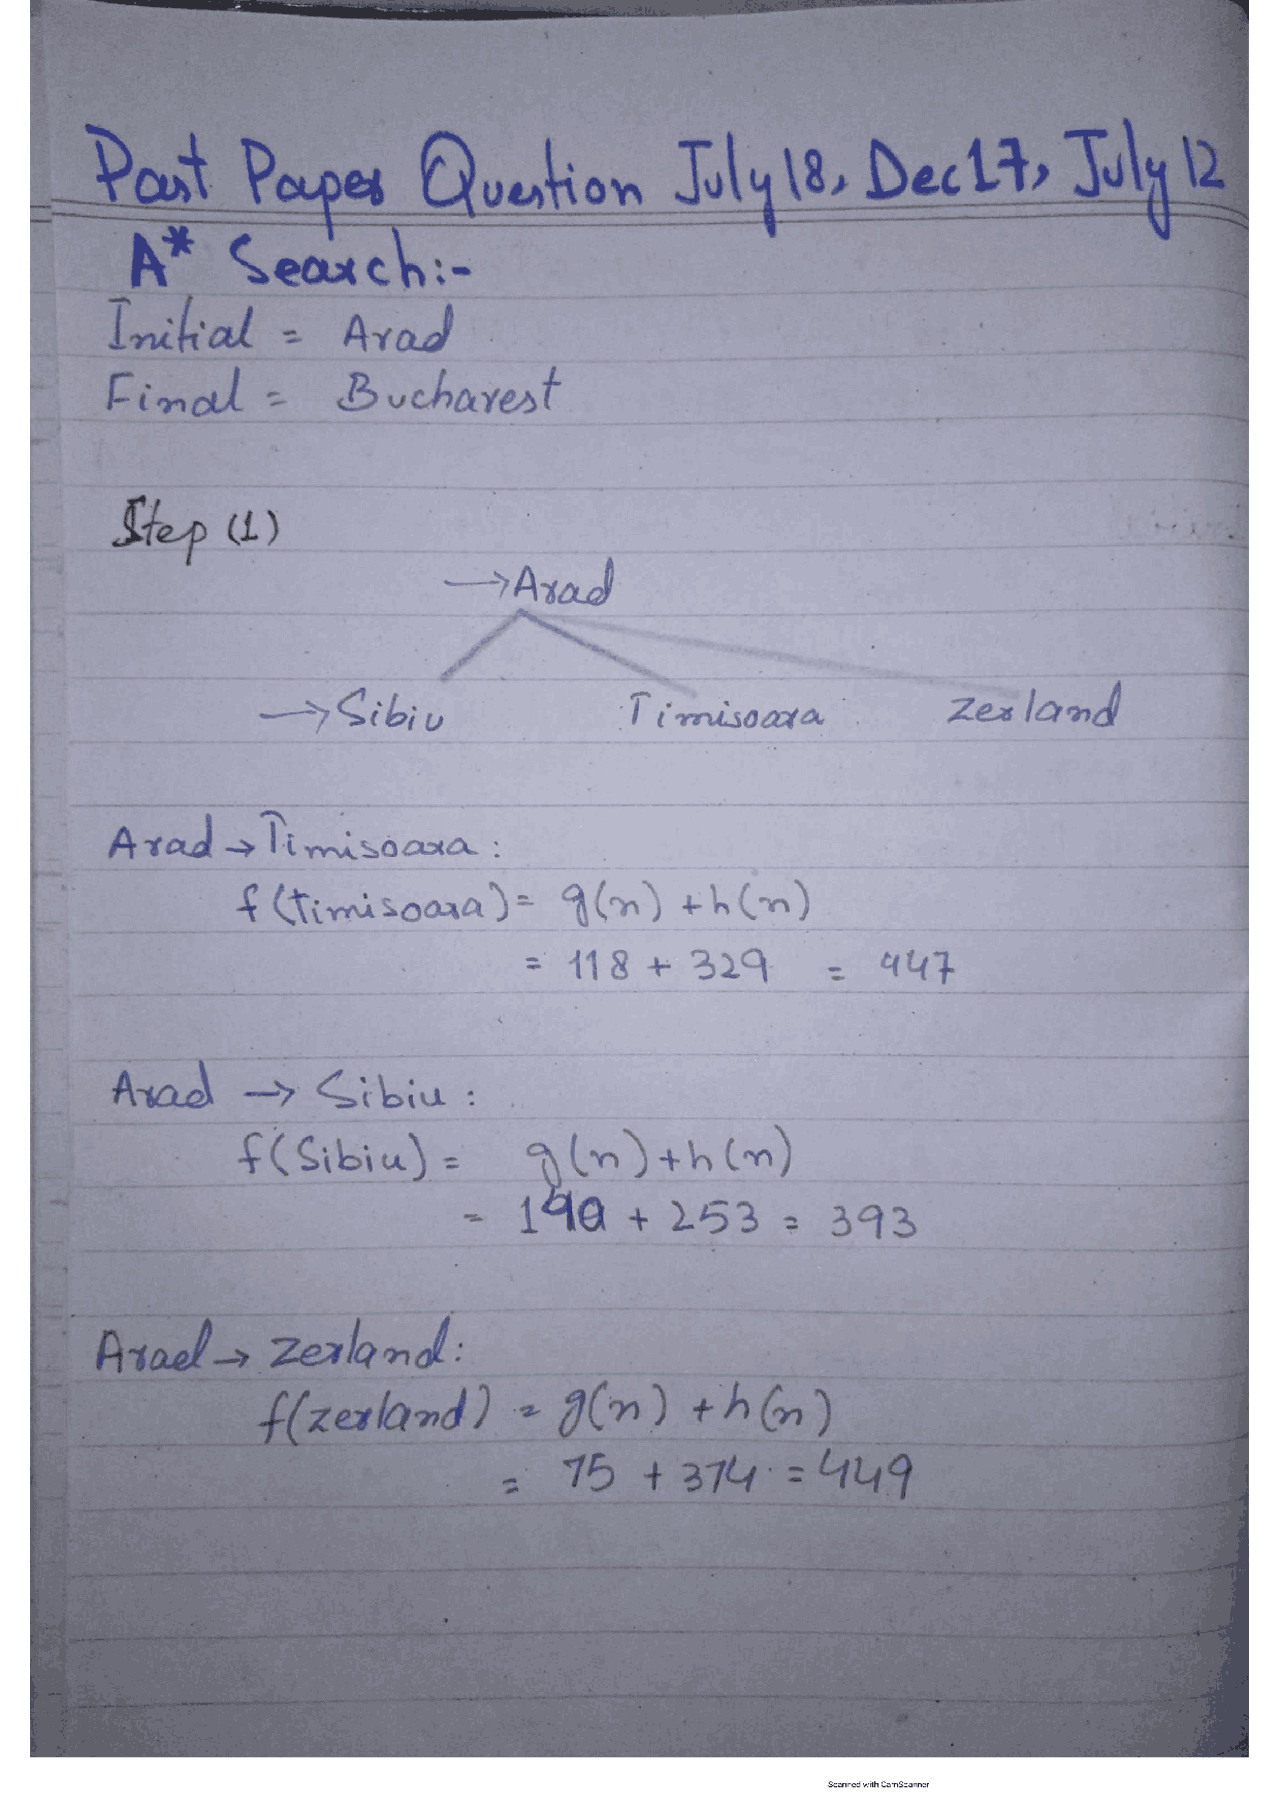 Past Paper Question July 18, Dec 17, July 12
A* Search:-
Initial = Arad
Final = Bucharest
Step (1)
→Arad
→Sibiu Timisoara Zerland
Arad → Timisoara :
f(timisoara) = g(n) + h(n)
= 118 + 329 = 447
Arad → Sibiu :
f(Sibiu) = g(n) + h(n)
= 140 + 253 = 393
Arad → Zerland:
f(zerland) = g(n) + h(n)
= 75 + 374 = 449
Scanned with CamScanner